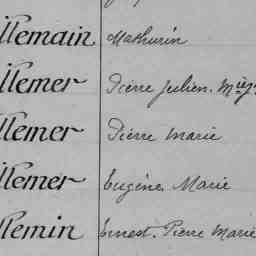 llemain Mathurin
llemer Pierre Julien. Mie J
llemer Pierre Marie
llemer Eugène Marie
llemin Ernest. Pierre Marie